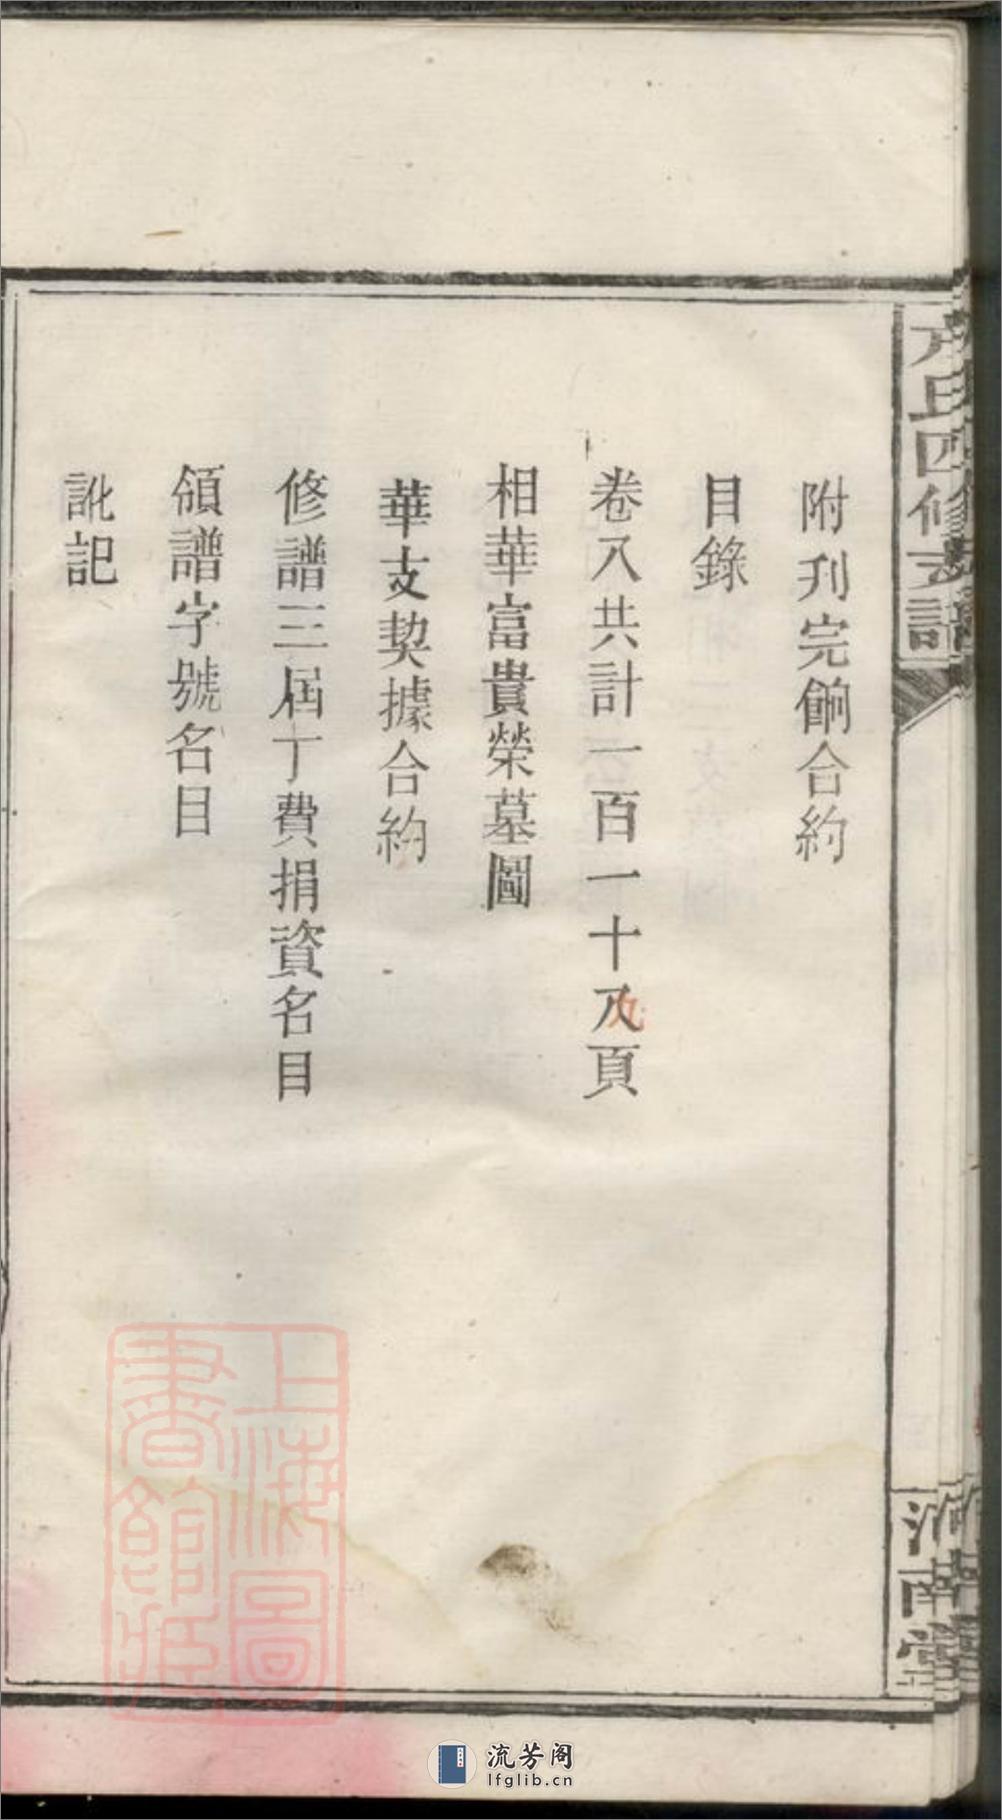 附刊完餉合約
目錄
卷八共計一百一十八頁
九
相華富貴榮墓圖
華支契據合約
修譜三屆丁費捐資名目
領譜字號名目
訛記
氏四修支譜
南堂
上海圖
書館藏
流芳阁
lfglib.cn